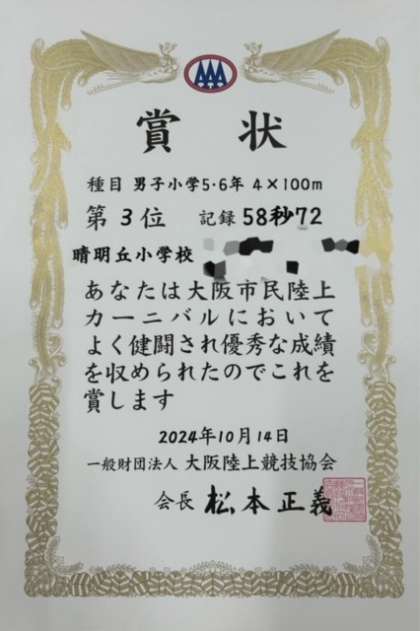 AAA
賞状
種目 男子小学5・6年 4×100m
第3位 記録 58秒72
晴明丘小学校
あなたは大阪市民陸上
カーニバルにおいて
よく健闘され優秀な成績
を収められたのでこれを
賞します
2024年10月14日
一般財団法人 大阪陸上競技協会
会長 松本正義